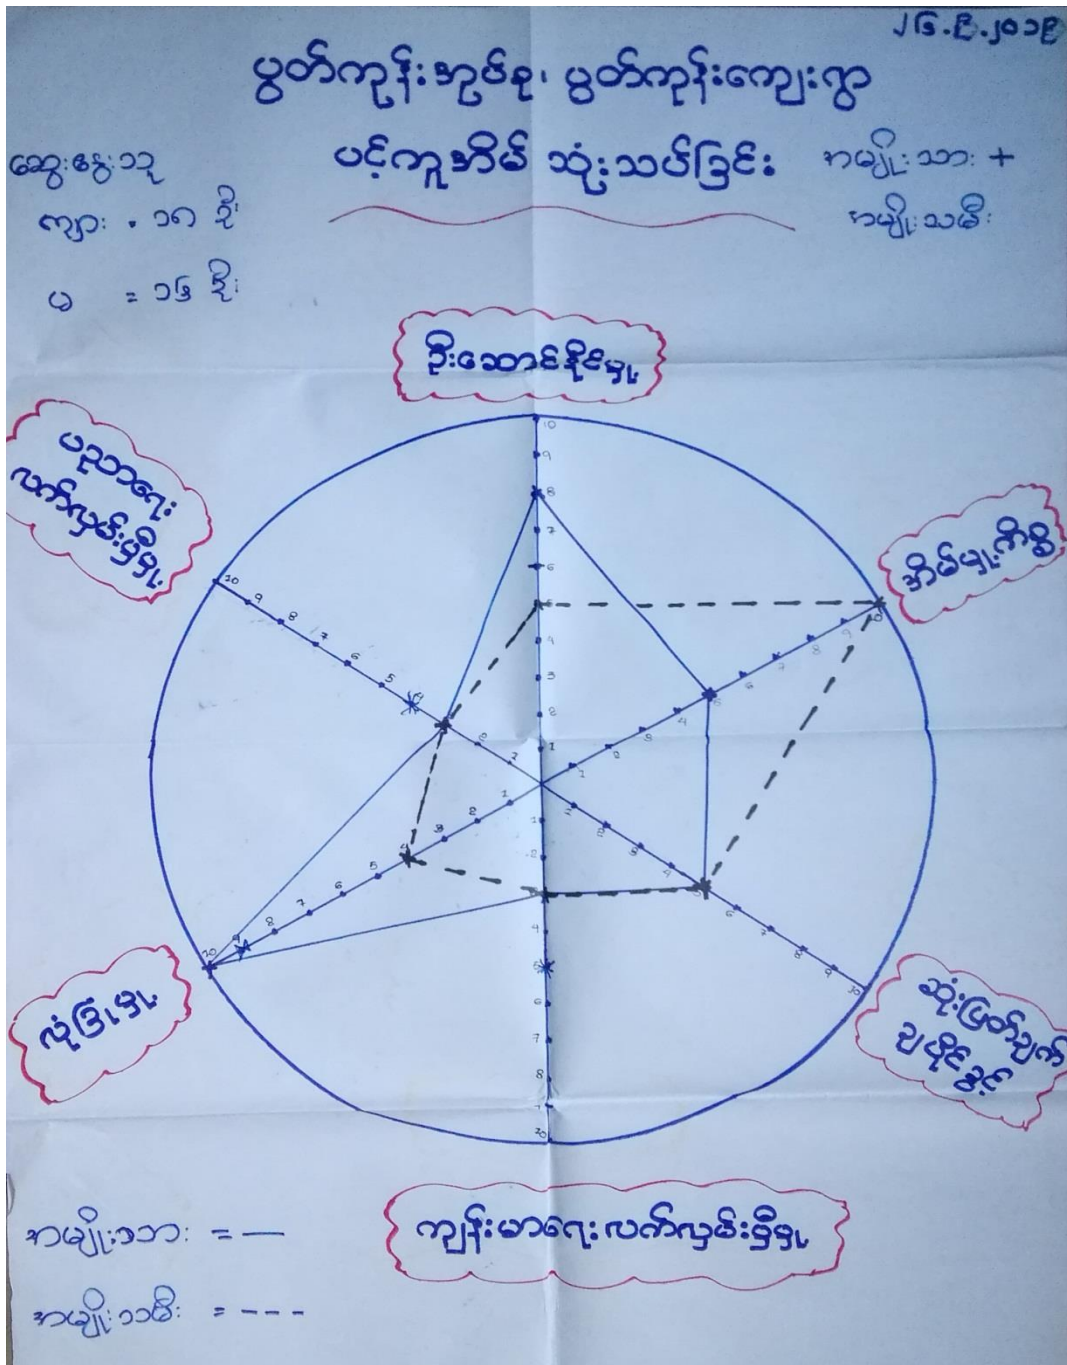 ၂၆.၉.၂၀၁၉
ပွတ်ကုန်းအုပ်စု၊ ပွတ်ကုန်းကျေးရွာ
ပင့်ကူအိမ် သုံးသပ်ခြင်း
ဆွေးနွေးသူ
ကျား = ၁၈ ဦး
မ = ၁၆ ဦး
အမျိုးသား +
အမျိုးသမီး
ဦးဆောင်နိုင်မှု
ပညာရေး
လက်လှမ်းမှီမှု
အိမ်မှုကိစ္စ
လုံခြုံမှု
ဆုံးဖြတ်ချက်
ချပိုင်ခွင့်
ကျန်းမာရေးလက်လှမ်းမှီမှု
10
9
8
7
6
5
4
3
2
1
10
9
8
7
6
5
4
3
2
1
10
9
8
7
6
5
4
3
2
1
1
2
3
4
5
6
7
8
9
10
1
2
3
4
5
6
7
8
9
10
1
2
3
4
5
6
7
8
9
10
အမျိုးသား = —
အမျိုးသမီး = - - -